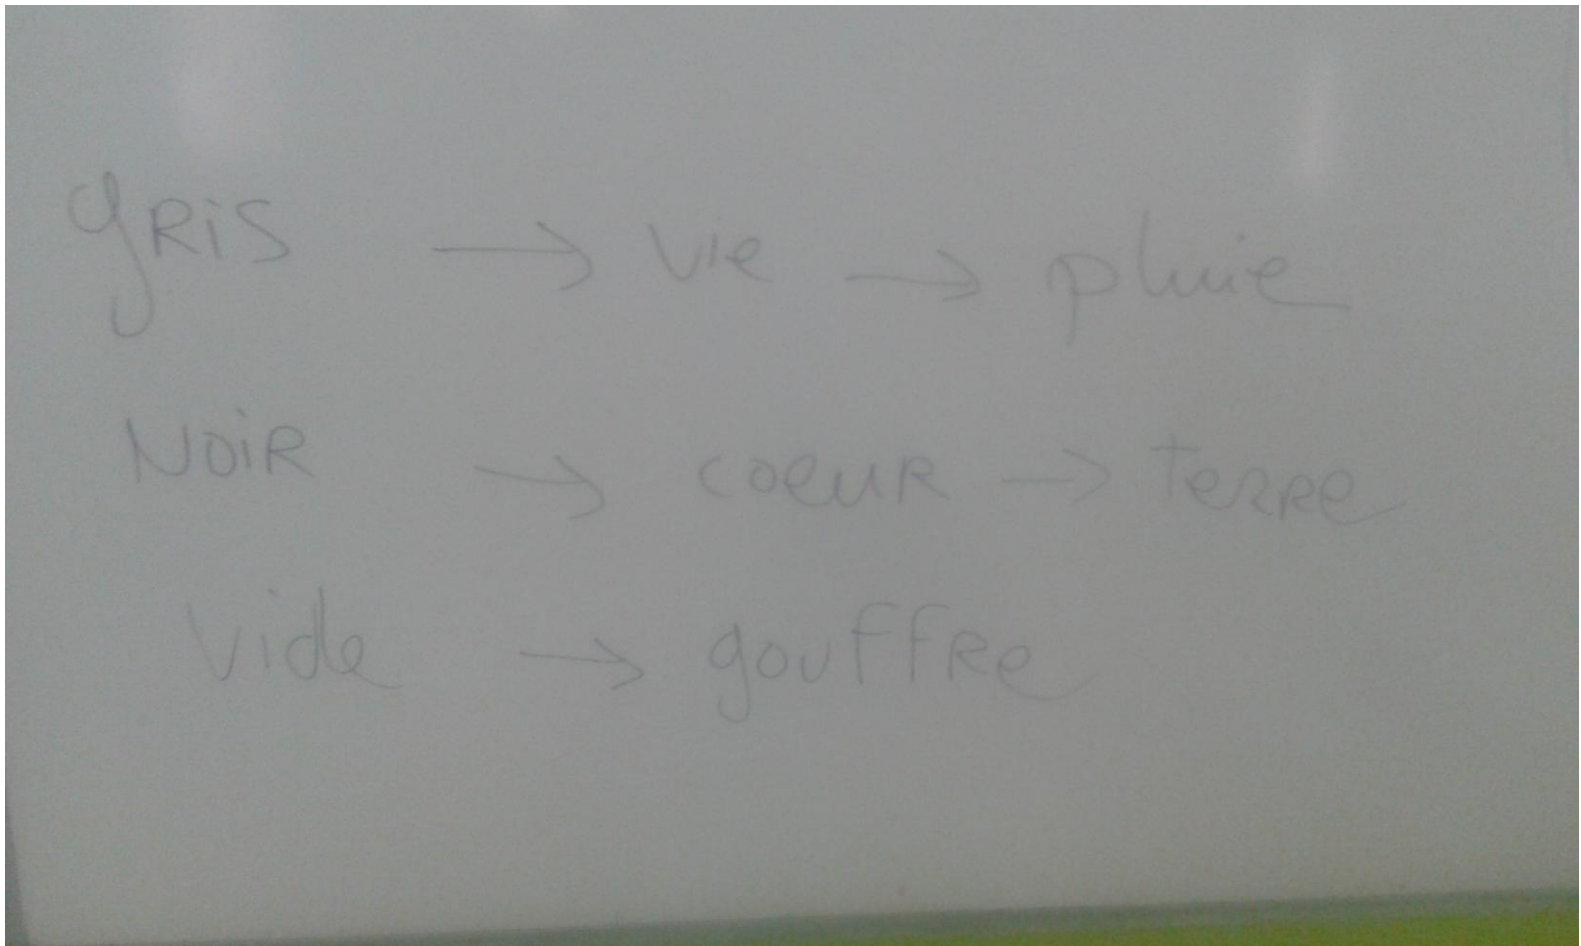 gRiS → vie → pluie
NoiR → coeuR → TeRRe
Vide → gouffRe